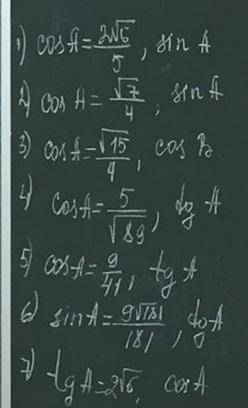 1) cos A = 2√6/5, sin A
2) cos A = √7/4, sin A
3) cos A = √15/4, cos B
4) cos A = 5/√89, tg A
5) cos A = 9/41, tg A
6) sin A = 9√181/181, tg A
7) tg A = 2√6, cos A